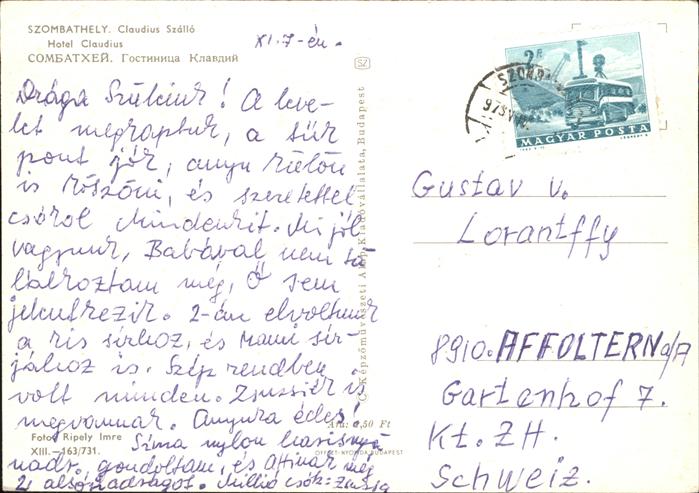 SZOMBATHELY. Claudius Szálló
Hotel Claudius
СОМБАТХЕЙ. Гостиница Клавдий
XI. 7-én.
Drága Szüleink! A leve-
let megkaptuk, a sür
pont jór, anyu külön
is köszöni, és szeretettel
csókol Mindenkit. Mi jól
vagyunk, Babával nem ta
lálkoztam még, Ő sem
jelentkezik. 2-án elvoltunk
a kis sírhoz, és Mami sír-
jához is. Szép rendben
volt minden. Zsuzsiék is
megvannak. Anyuka édes!
Sima nylon harisnyá
nadr. gondoltam, és Attinak még
2 alsónadrágot. Millió csók: Zsuzsa
Fotó: Ripely Imre
XIII.—163/731.
SZ
© Képzőművészeti Alap Kiadóvállalata, Budapest
Ára: 1,50 Ft
OFFSET-NYOMDA BUDAPEST
2 Ft
MAGYAR POSTA
SZOMB
973
Gustav v.
Lorantffy
8910. AFFOLTERN a/A
Gartenhof 7.
Kt. ZH.
Schweiz.